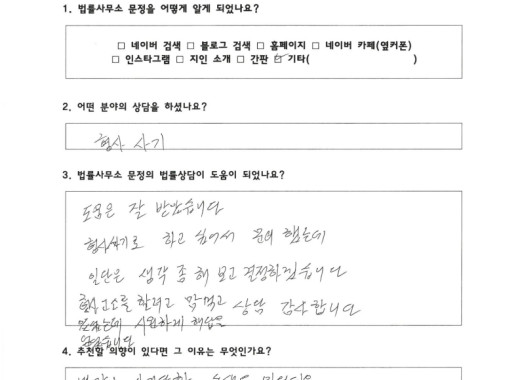 1. 법률사무소 문정을 어떻게 알게 되었나요?
□ 네이버 검색 □ 블로그 검색 □ 홈페이지 □ 네이버 카페(옆커폰)
□ 인스타그램 □ 지인 소개 □ 간판 □ 기타( )
2. 어떤 분야의 상담을 하셨나요?
형사 사기
3. 법률사무소 문정의 법률상담이 도움이 되었나요?
도움은 잘 받았습니다
형사사기로 하고 싶어서 문의 했는데
일단은 생각 좀 해 보고 결정하겠습니다
형사고소를 할려고 맘먹고 상담 감사합니다
시원하게 해답을
4. 추천할 의향이 있다면 그 이유는 무엇인가요?